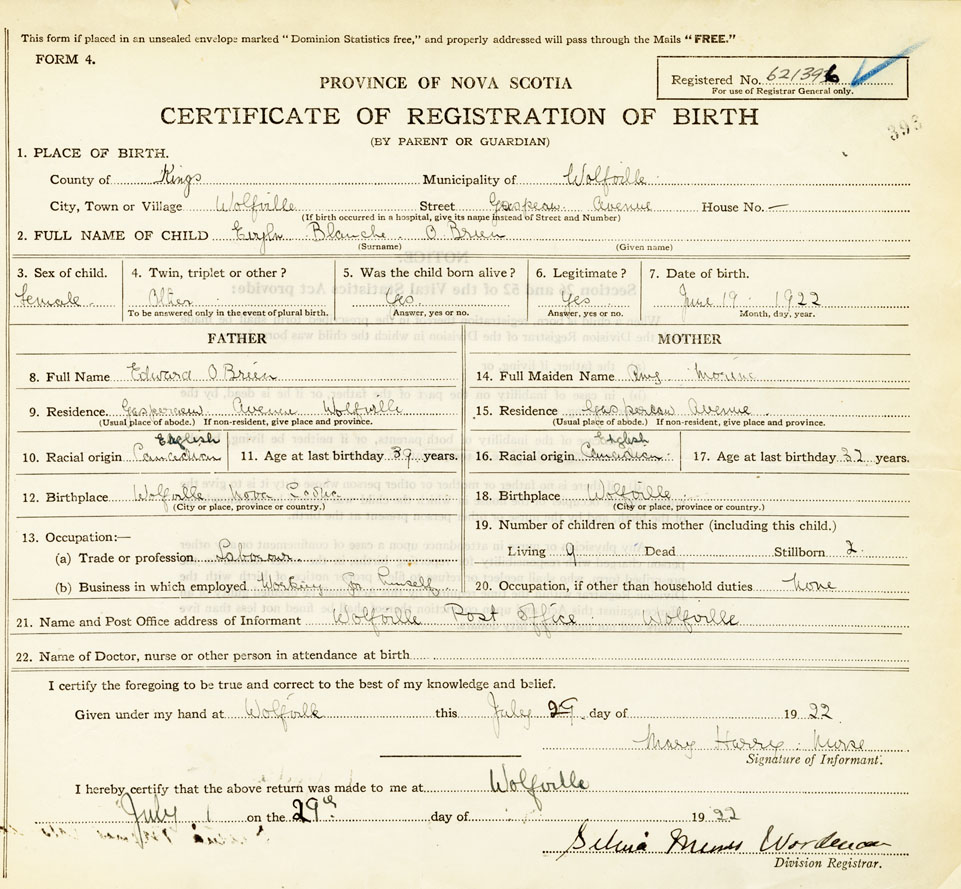 This form if placed in an unsealed envelope marked "Dominion Statistics free," and properly addressed will pass through the Mails "FREE."
FORM 4.
Registered No. 621396
For use of Registrar General only.
PROVINCE OF NOVA SCOTIA
CERTIFICATE OF REGISTRATION OF BIRTH
(BY PARENT OR GUARDIAN)
395
1. PLACE OF BIRTH.
County of Kings Municipality of Wolfville
City, Town or Village Wolfville Street Gaspeau Avenue House No. —
(If birth occurred in a hospital, give its name instead of Street and Number)
2. FULL NAME OF CHILD Blanche O Brien
(Surname) (Given name)
3. Sex of child. 4. Twin, triplet or other? 5. Was the child born alive? 6. Legitimate? 7. Date of birth.
Female Other Yes. Yes June 19 1922
To be answered only in the event of plural birth. Answer, yes or no. Answer, yes or no. Month, day, year.
FATHER MOTHER
8. Full Name Edward O Brien 14. Full Maiden Name
9. Residence. Gaspereau Avenue Wolfville 15. Residence Gaspereau Avenue
(Usual place of abode.) If non-resident, give place and province. (Usual place of abode.) If non-resident, give place and province.
English English
10. Racial origin Canadian 11. Age at last birthday 39 years. 16. Racial origin Canadian 17. Age at last birthday 37 years.
12. Birthplace Wolfville Nova Scotia 18. Birthplace Wolfville
(City or place, province or country.) (City or place, province or country.)
13. Occupation:— 19. Number of children of this mother (including this child.)
(a) Trade or profession Labourer Living 9 Dead Stillborn 2
(b) Business in which employed Working for himself 20. Occupation, if other than household duties None
21. Name and Post Office address of Informant Wolfville Post Office Wolfville
22. Name of Doctor, nurse or other person in attendance at birth
I certify the foregoing to be true and correct to the best of my knowledge and belief.
Given under my hand at Wolfville this July 29 day of 1922
Mary Harris Nurse
Signature of Informant.
I hereby certify that the above return was made to me at Wolfville
July on the 29th day of 1922
Division Registrar.